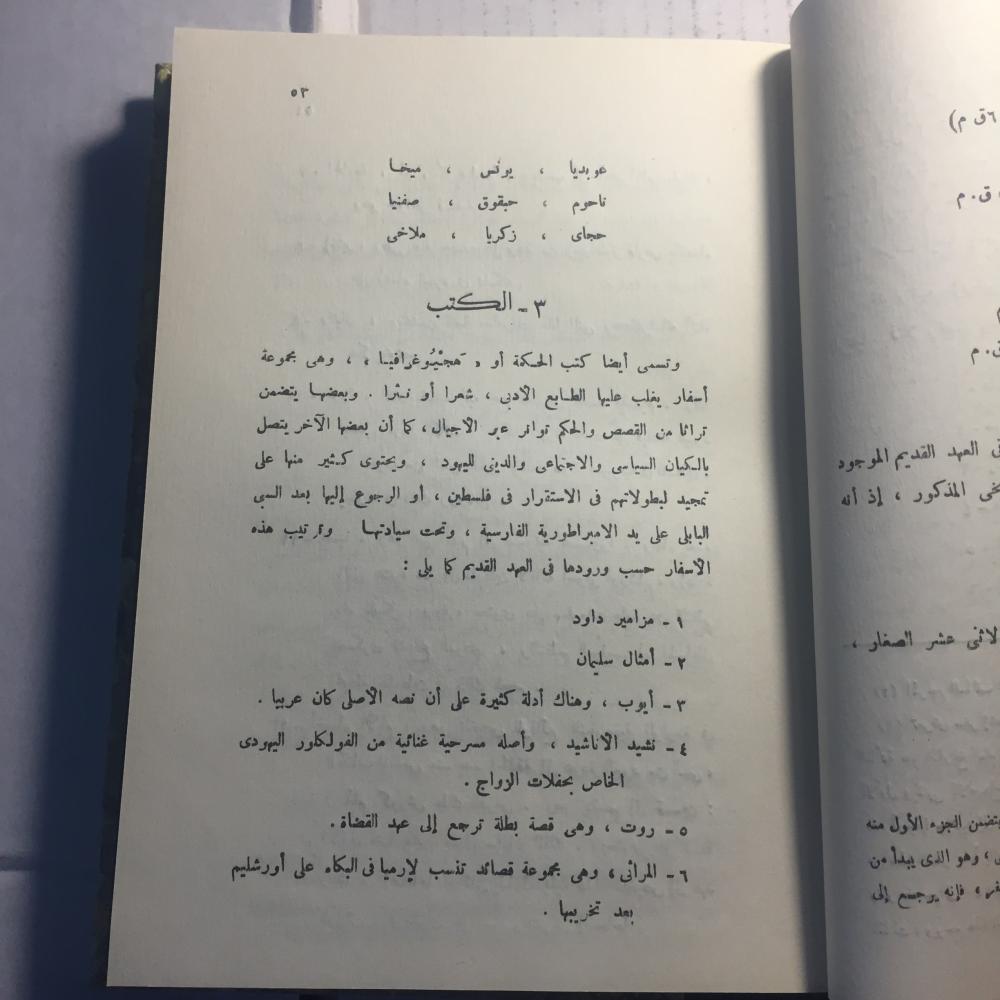 ٥٣
عوبديا ، يونس ، ميخا
ناحوم ، حبقوق ، صفنيا
حجاى ، زكريا ، ملاخى
٣ ـ الكتب
وتسمى أيضا كتب الحكمة أو « هجيُوغرافيا » ، وهى مجموعة
أسفار يغلب عليها الطابع الأدبى ، شعرا أو نثرا . وبعضها يتضمن
تراثا من القصص والحكم تواتر عبر الأجيال ، كما أن بعضها الآخر يتصل
بالكيان السياسى والاجتماعى والدينى لليهود ، ويحتوى كثير منها على
تمجيد لبطولاتهم فى الاستقرار فى فلسطين ، أو الرجوع إليها بعد السبى
البابلى على يد الامبراطورية الفارسية ، وتحت سيادتها . وترتيب هذه
الأسفار حسب ورودها فى العهد القديم كما يلى :
١ ـ مزامير داود
٢ ـ أمثال سليمان
٣ ـ أيوب ، وهناك أدلة كثيرة على أن نصه الأصلى كان عربيا .
٤ ـ نشيد الأناشيد ، وأصله مسرحية غنائية من الفولكلور اليهودى
الخاص بحفلات الزواج .
٥ ـ روت ، وهى قصة بطلة ترجع إلى عهد القضاة .
٦ ـ المراثى ، وهى مجموعة قصائد تنسب لإرميا فى البكاء على أورشليم
بعد تخريبها .
٦ق م)
ق . م
ق . م
العهد القديم الموجود
المذكور ، إذ أنه
عشر الصغار ،
الجزء الأول منه
، وهو الذى يبدأ من
، فإنه يرجع إلى